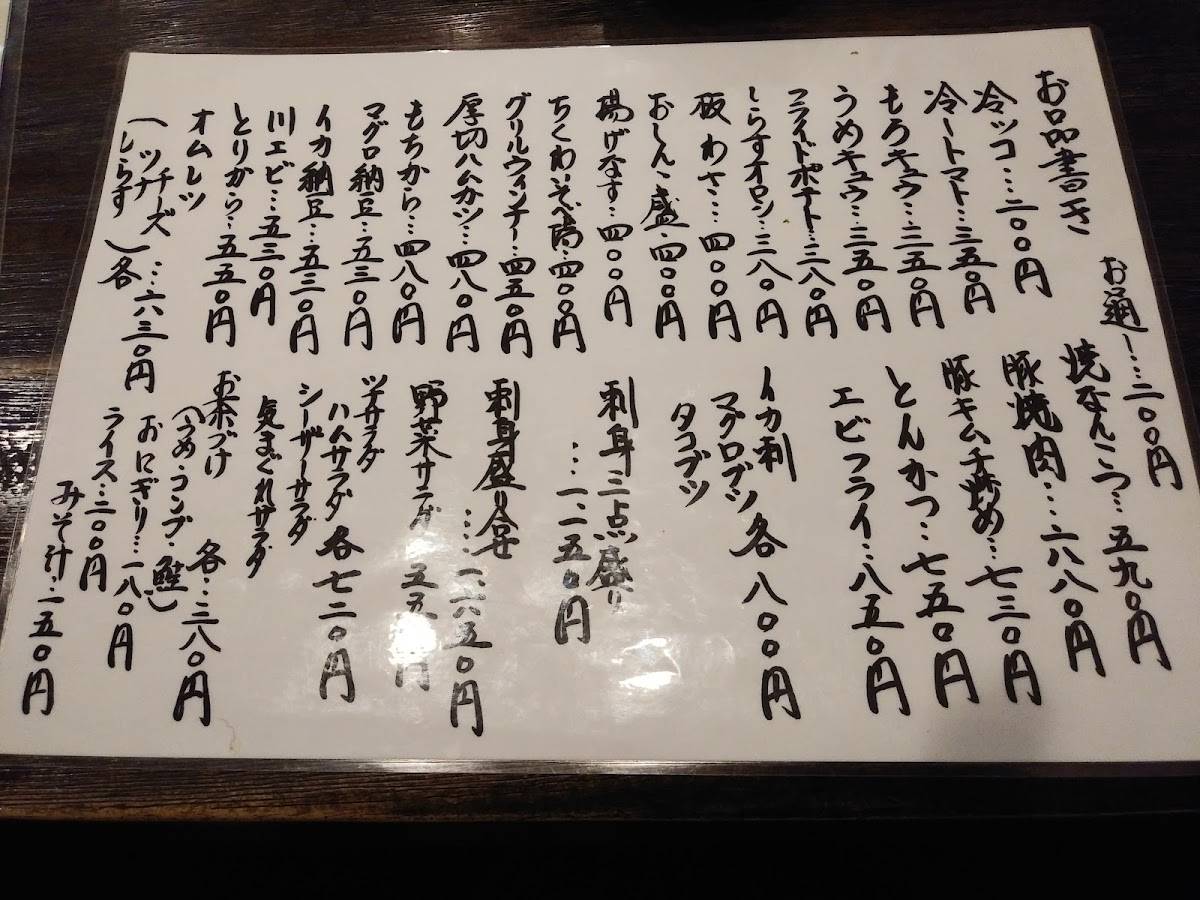 お品書き
お通し…二〇〇円
冷ツコ…二〇〇円
冷トマト…三五〇円
もろキュウ…三五〇円
うめキュウ…三五〇円
フライドポテト…三八〇円
しらすオロシ…三八〇円
板わさ…四〇〇円
おしんこ盛…四〇〇円
揚げなす…四〇〇円
ちくわいそべ揚…四〇〇円
グリルウィンナー…四五〇円
厚切ハムカツ…四八〇円
もちから…四八〇円
マグロ納豆…五三〇円
イカ納豆…五三〇円
川エビ…五三〇円
とりから…五五〇円
オムレツ
(チーズ
ツナ
しらす)各…六三〇円
焼なんこつ…五九〇円
豚焼肉…六八〇円
豚キムチ炒め…七三〇円
とんかつ…七五〇円
エビフライ…八五〇円
イカ刺
マグロブツ 各八〇〇円
タコブツ
刺身三点盛り
…一、一五〇円
刺身盛り合せ
……一、六五〇円
野菜サラダ 五五〇円
ツナサラダ
ハムサラダ 各七二〇円
シーザーサラダ
気まぐれサラダ
お茶づけ
(うめ・コンブ・鮭)
各…三八〇円
おにぎり…一八〇円
ライス…二〇〇円
みそ汁…一五〇円